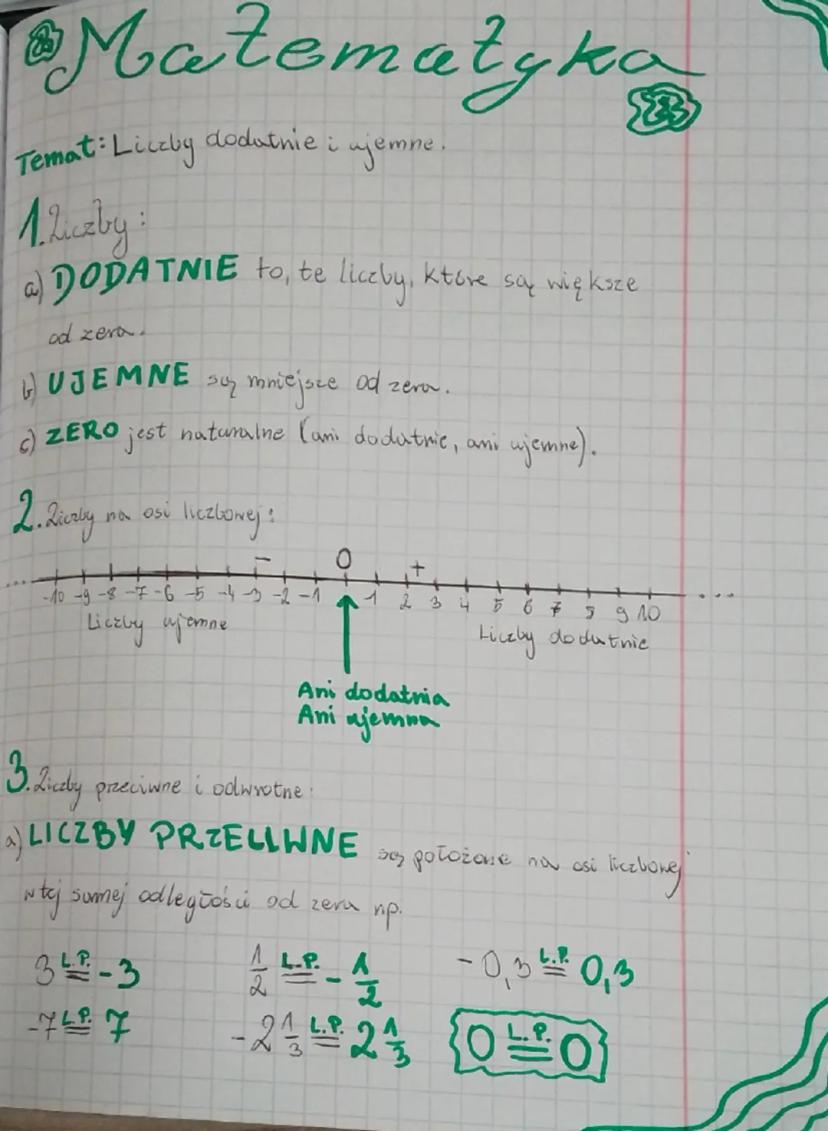 Matematyka
Temat: Liczby dodatnie i ujemne.
1. Liczby:
a) DODATNIE to, te liczby, które są większe
od zera.
b) UJEMNE są mniejsze od zera.
c) ZERO jest naturalne (ani dodatnie, ani ujemne).
2. Liczby na osi liczbowej:
− 0 +
... -10 -9 -8 -7 -6 -5 -4 -3 -2 -1 1 2 3 4 5 6 7 8 9 10 ...
Liczby ujemne Liczby dodatnie
Ani dodatnia
Ani ujemna
3. Liczby przeciwne i odwrotne:
a) LICZBY PRZECIWNE są położone na osi liczbowej
w tej samej odległości od zera np.
3 L.P.= -3 1/2 L.P.= -1/2 -0,3 L.P.= 0,3
-7 L.P.= 7 -2 1/3 L.P.= 2 1/3 0 L.P.= 0